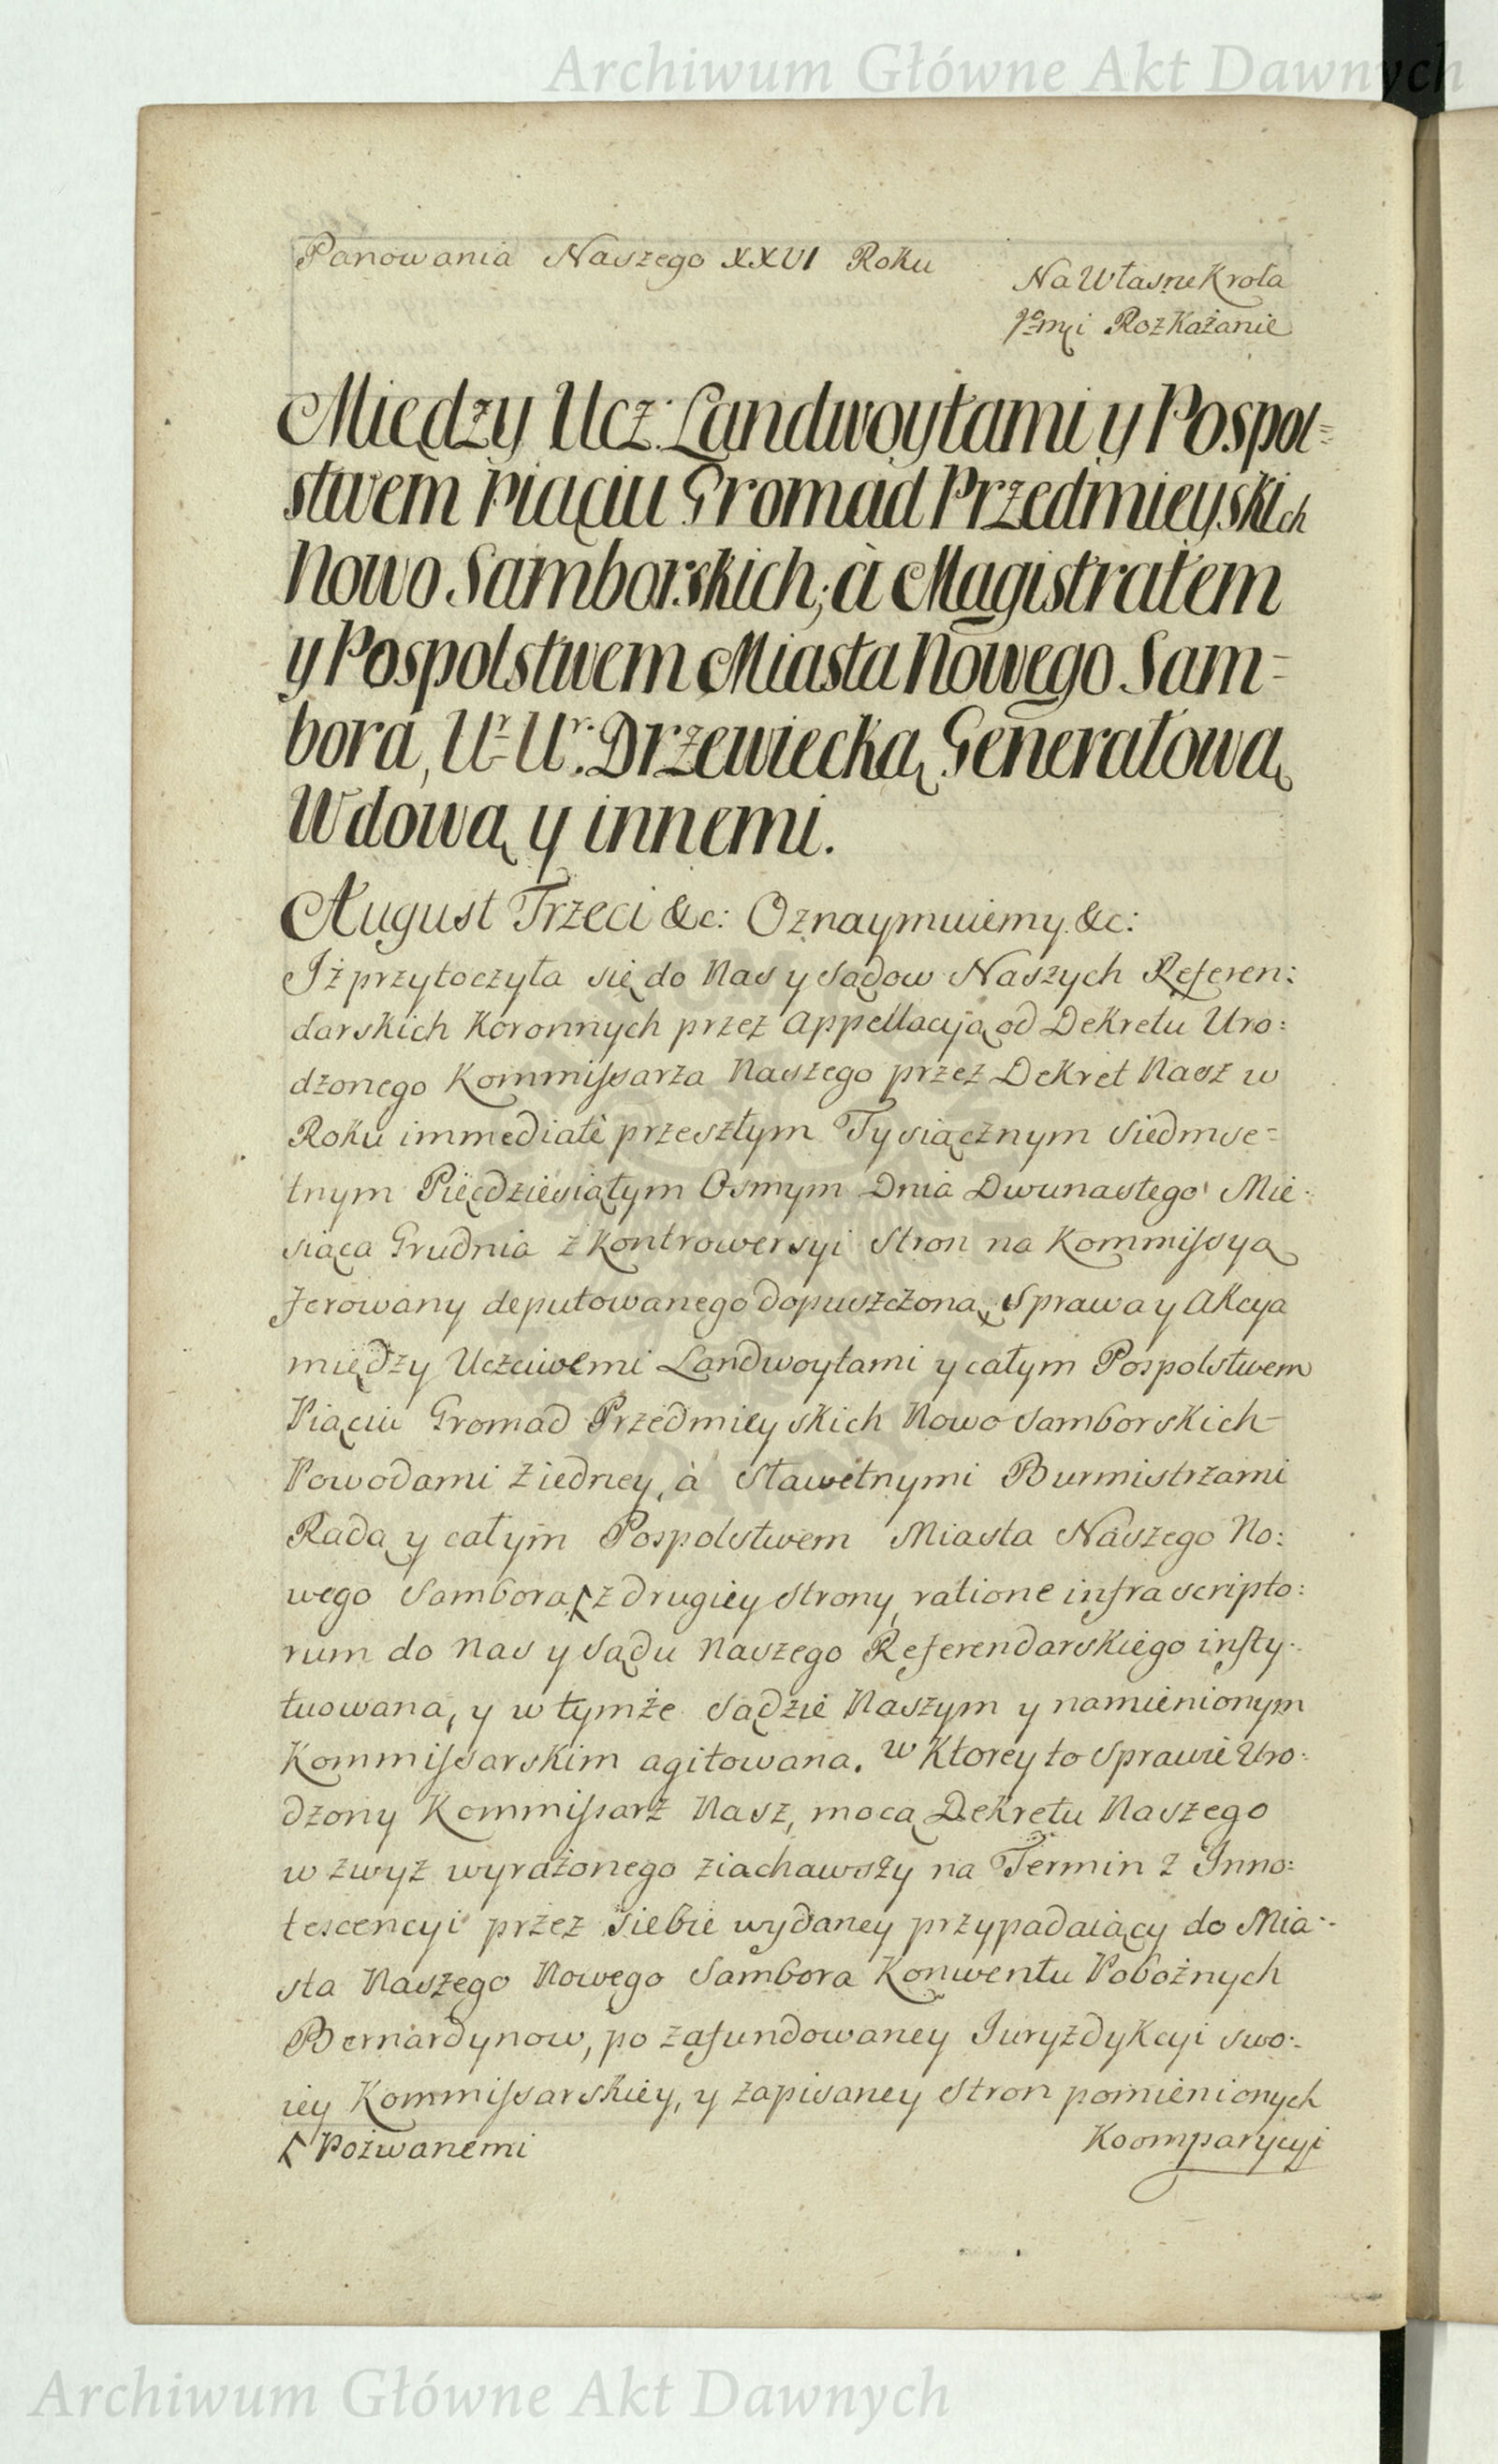 Archiwum Główne Akt Dawnych
Panowania Naszego XXVI Roku
Na Własne Krola
Jᵒmći Rozkażanie
Między Ucz: Landwoytami y Pospol=
stwem Piąciu Gromad Przedmieyskich
Nowo Samborskich; à Magistratem
y Pospolstwem Miasta Nowego Sam=
bora, Ur Ur: Drzewiecką Generałową
Wdową y innemi.
August Trzeci &c: Oznaymuiemy &c:
Iż przytoczyła się do Nas y Sądow Naszych Referen:
darskich Koronnych przez Appellacyją od Dekretu Uro:
dzonego Kommissarza Naszego przez Dekret Nasz w
Roku immediatè przeszłym Tysiącznym Siedmse=
tnym Pięćdziesiątym Osmym Dnia Dwunastego Mie:
siąca Grudnia z Kontrowersyi Stron na Kommissyą
ferowany deputowanego dopuszczoną, Sprawa y Akcya
między Uczciwemi Landwoytami y całym Pospolstwem
Piąciu Gromad Przedmieyskich Nowo Samborskich
Powodami z iedney, à Sławetnymi Burmistrzami
Radą y całym Pospolstwem Miasta Naszego No:
wego Sambora, z drugiey Strony, ratione infra scripto:
rum do Nas y Sądu Naszego Referendarskiego insty:
tuowana, y w tymże Sądzie Naszym y namienionym
Kommissarskim agitowana. W Ktorey to Sprawie Uro:
dzony Kommissarz Nasz, mocą Dekretu Naszego
w zwyż wyrażonego ziachawszy na Termin z Inno:
tescencyi przez siebie wydaney przypadaiący do Mia:
sta Naszego Nowego Sambora Konwentu Pobożnych
Bernardynow, po zafundowaney Iuryzdykcyi swo:
iey Kommissarskiey, y zapisaney Stron pomienionych
Pozwanemi
Koomparycyi
Archiwum Główne Akt Dawnych